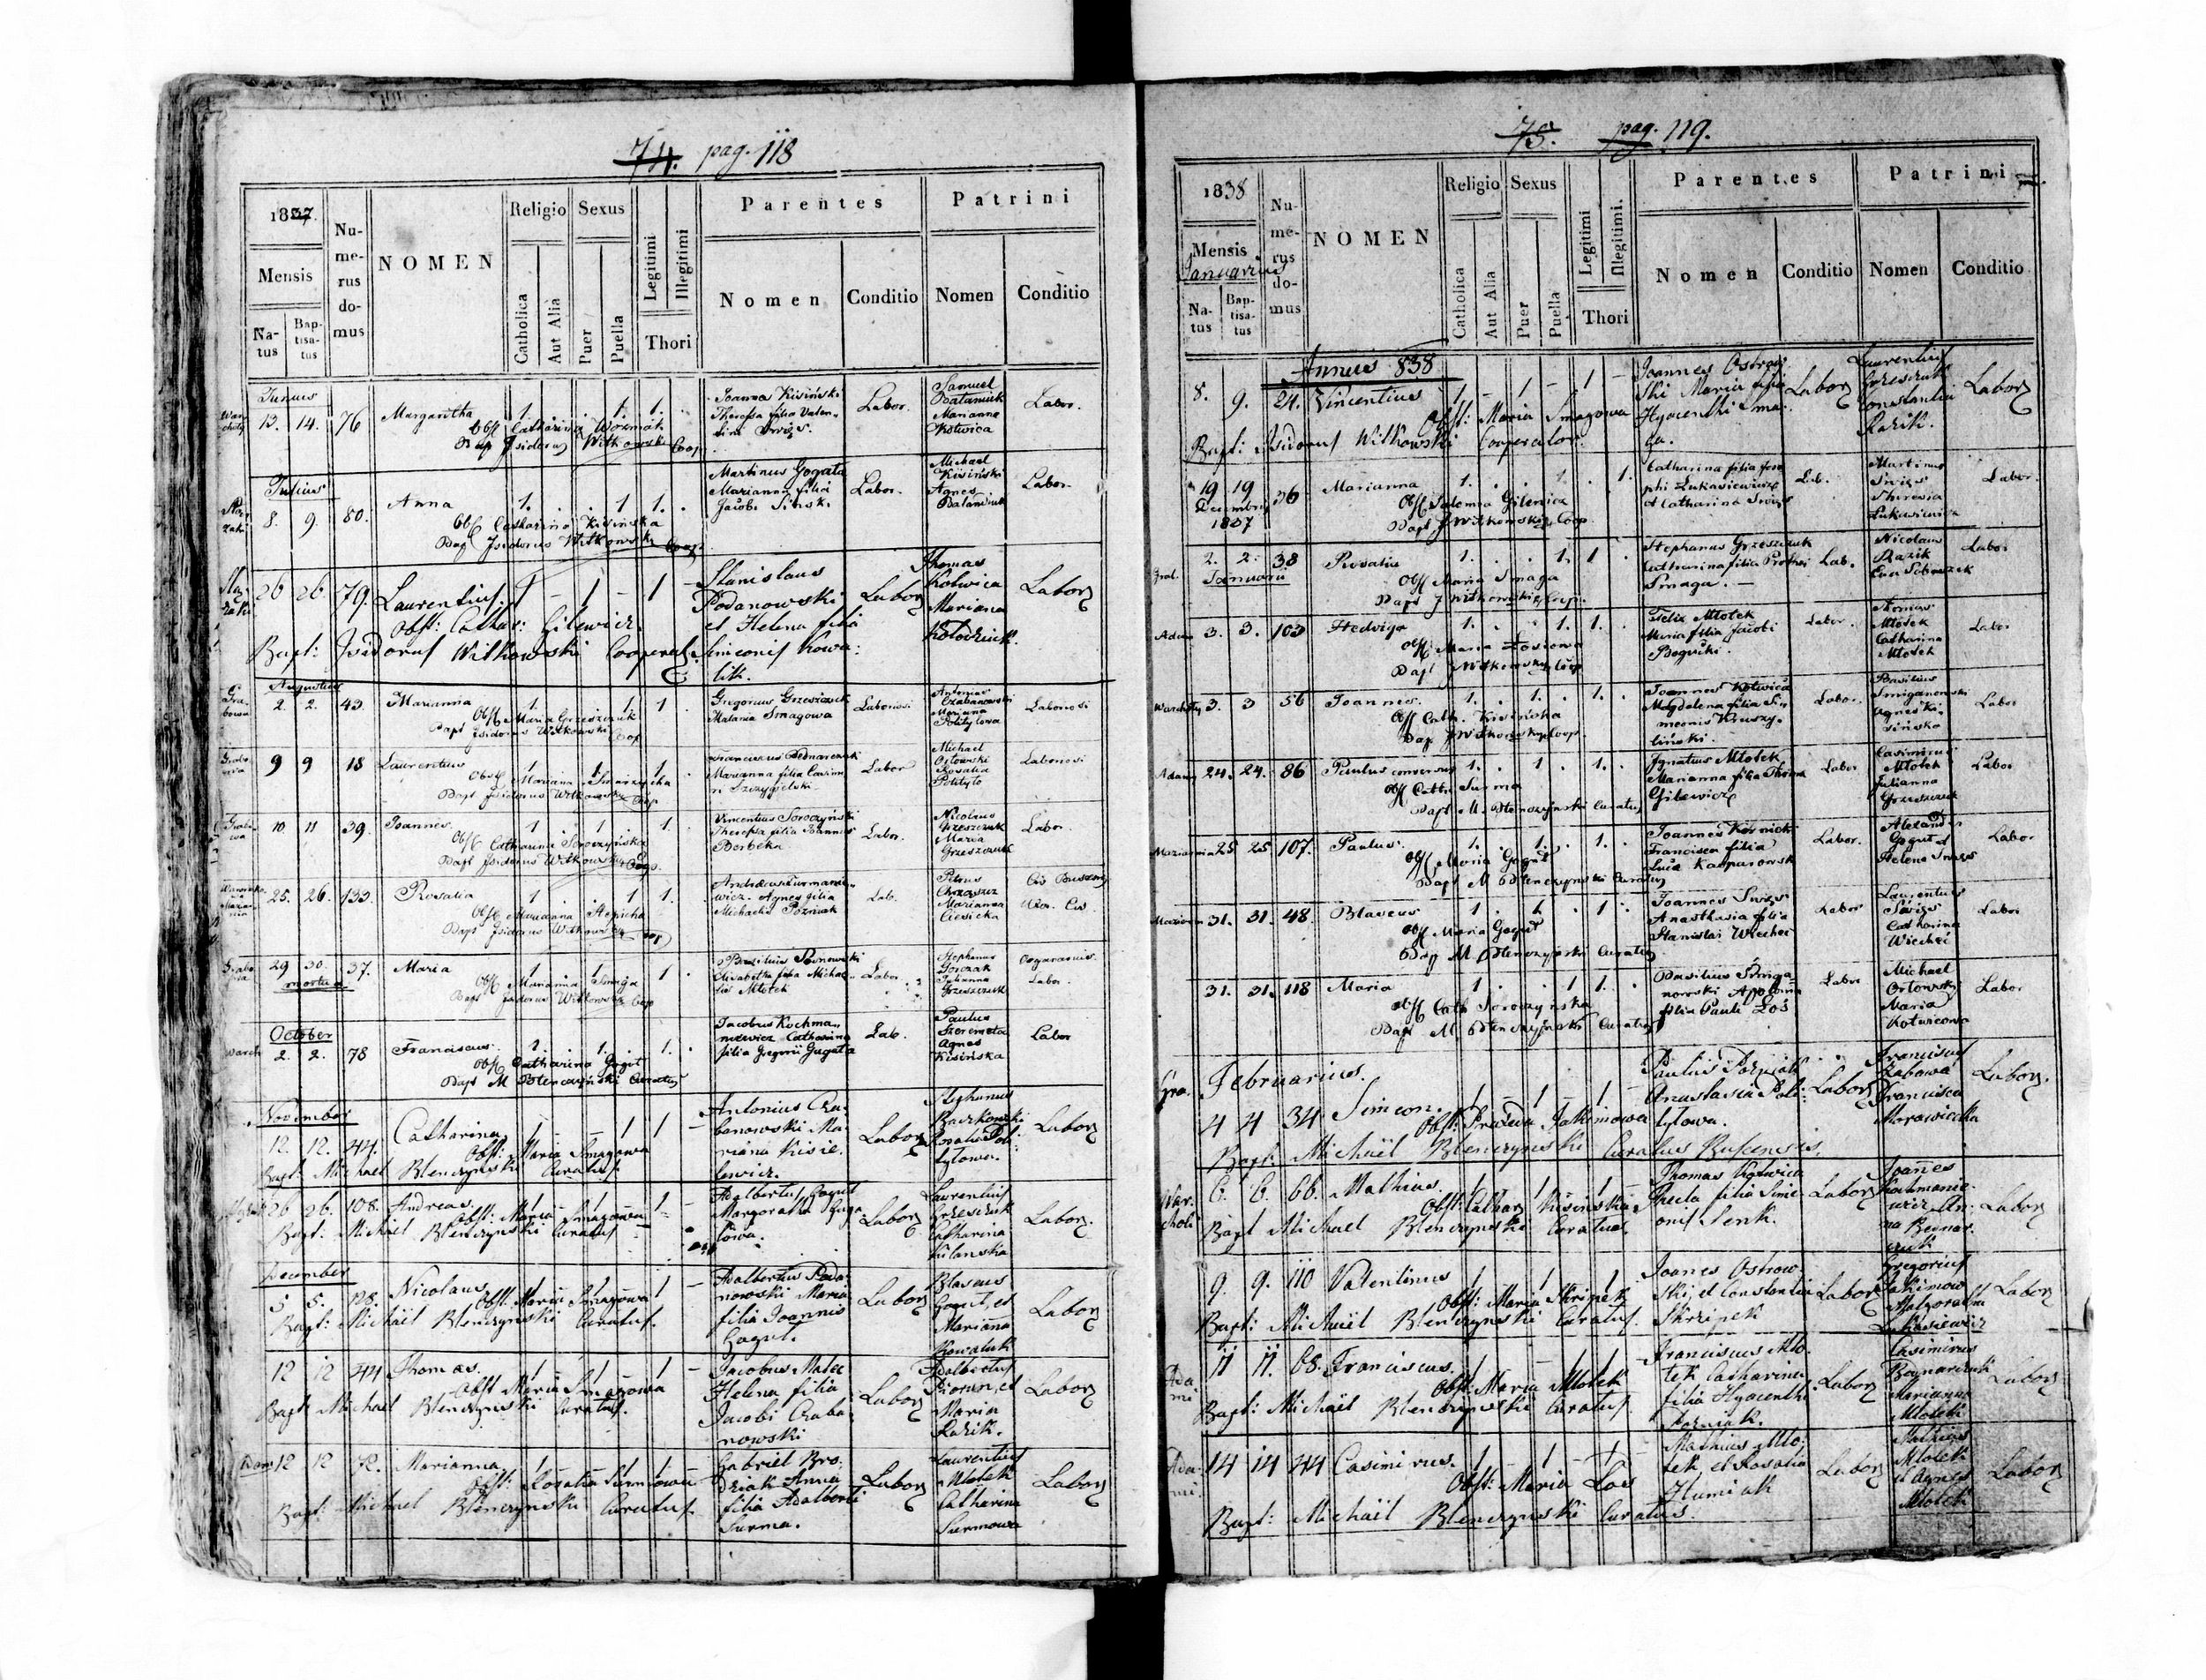 74. pag. 118
1837.
Mensis
Na-
tus
Bap-
tisa-
tus
Nu-
me-
rus
do-
mus
NOMEN
Religio
Catholica
Aut Alia
Sexus
Puer
Puella
Legitimi
Illegitimi
Thori
Parentes
Nomen
Conditio
Patrini
Nomen
Conditio
Junius
13. 14. 76 Margaritha 1. 1. 1.
Obst Catharina Woźniak
Bap Isidorus Witkowski Coop
Joannes Kisiński
Theressa filia Valen-
tini
Labor.
Samuel
Marianna
Kotwica
Labor.
Julius
8. 9. 80. Anna 1. 1 1.
Obst Catharina Kisińska
Bap Isidorus Witkowski Coop.
Martinus Gogała
Marianna filia
Jacobi
Labor.
Michael
Kisiński
Agnes
Labor.
26 26 79. Laurentius. 1 - 1 - 1 -
Obst: Cathar: Gilewicz.
Bapt: Isidorus Witkowski Cooperat.
Stanislaus
Podanowski
et Helena filia
Simeonis Kowa:
lik.
Labor
Thomas
Kotwica
Mariana
Kołodziuk.
Labor
Augustus
2. 2. 43. Marianna 1. 1 1
Obst Maria Grzeszczuk
Bapt Isidorus Witkowski Coop
Gregorius Grzeszczuk
Matania Smagowa
Laboriosi
Antonius
Czabanowski
Mariana
Politylowa
Laboriosi
9 9 18 Laurentius 1 1 1.
Obst Marianna
Bapt Isidorus Witkowski Coop
Franciscus Bednarczuk
Marianna filia Casimi
ri Szczygielski
Labor
Michael
Orłowski
Rosalia
Polityło
Laboriosi
10 11 39. Joannes. 1 1 1.
Obst Catharina Soroczyńska
Bapt Isidorus Witkowski Coop.
Vincentius Soroczyński
Theressa filia Joannis
Berbeka
Labor.
Nicolaus
Grzeszczuk
Maria
Grzeszczuk
Labor.
25. 26. 133. Rosalia 1 1 1.
Obst Marianna
Bapt Isidorus Witkowski Coop
Andreas Furmanie-
wicz. Agnes filia
Michaelis Pozniak
Lab.
Petrus
Chrząszcz
Marianna
Ciesicka
29 30. 37. Maria 1 1 1.
mortua
Obst Marianna Smaga
Bapt Isidorus Witkowski Coop
Basilius
Elisabetha filia Michae-
lis Młotek
Labor
Stephanus
Gorczak
Julianna
Grzeszczuk
Labor.
October
2. 2. 78 Franciscus 1. 1. 1.
Obst Catharina Gogut
Bapt M Blenczyński Curatus
Jacobus Kochma-
niewicz Catharina
filia Gregorii Gugała
Lab.
Paulus
Szeremeta
Agnes
Kisińska
Labor
November
12. 12. 44. Catharina 1 1 1 -
Obst: Maria Smagowa
Bapt: Michael Blenczynski Curatus.
Antonius Cza-
banowski Ma-
riana Kisie.
lewicz.
Labor
Stephanus
Baczkowski
Rosalia Pol:
tylowa.
Labor
26 26. 108. Andreas. 1 1 1 -
Obst: Maria Smagowa
Bapt: Michael Blenczynski Curatus
Adalbertus Gogut
Margaratha
Labor
Laurentius
Grzesczuk
Catharina
Labor.
December
5 5. Nicolaus 1 1 1 -
Obst: Maria Smagowa
Bapt: Michaël Blenczynski Curatus.
Adalbertus Poda-
nowski Maria
filia Joannis
Gogut.
Labor
Blaseus
Gogut, et
Marianna
Kowaluk
Labor
12 12 44 Thomas. 1 1 1 -
Obst Maria Smagowa
Bapt: Michael Blenczynski Curatus.
Jacobus Malec
Helena filia
Jacobi Czaba
nowski
Labor
Adalbertus
Piorun, et
Maria
Razik.
Labor
12 12 72. Marianna 1 1 1 -
Obst: Rosalia Surmowa
Bapt: Michael Blenczynski Curatus.
Gabriel Bro:
dziak Anna
filia Adalberti
Surma.
Labor
Laurentius
Młotek
Catharina
Surmowa
Labor
75. pag. 119.
1838
Mensis
Januarius
Na-
tus
Bap-
tisa-
tus
Nu-
me-
rus
do-
mus
NOMEN
Religio
Catholica
Aut Alia
Sexus
Puer
Puella
Legitimi
Illegitimi.
Thori
Parentes
Nomen
Conditio
Patrini
Nomen
Conditio
Annus 838
8. 9. 24. Vincentius 1 - 1 - 1 -
Obst: Maria Smagowa
Bapt: Isidorus Witkowski Cooperator.
Joannes Ostrow
ski Maria filia
Hyacenthi Sma-
ga.
Labor
Laurentius
Grzesczuk
Constantia
Razik.
Labor
19 19 36 Marianna 1. 1. 1.
Decembris
1837
Obst Salomea Gilewicz
Bapt J Witkowski Coop
Catharina filia Jose
phi Łukasiewicz
et Catharina
Lab.
Martinus
Theresia
Łukasiewicz
Labor.
2. 2. 38 Rosalia 1. 1. 1
Januarii
Obst Maria Smaga
Bapt J Witkowski Coop.
Stephanus Grzeszczuk
Catharina filia
Smaga. -
Lab.
Nicolaus
Razik
Eva
Labor
3. 3. 103 Hedviga 1. 1. 1.
Obst Maria Łosiowa
Bapt J Witkowski Coop
Felix Młotek
Maria filia Jacobi
Labor.
Thomas
Młotek
Catharina
Młotek
Labor
3. 3 56 Joannes. 1. 1. 1.
Obst Cath. Kisińska
Bap J Witkowski Coop.
Joannes Kotwica
Magdalena filia Si-
meonis Kruszy-
liński.
Labor.
Basilius
Smiganowski
Agnes Ki-
sińska
Labor
24. 24. 86 Paulus conversus 1. 1 1.
Obst Cath Surma
Bapt M Blenczyński Curatus
Ignatius Młotek
Marianna filia Thoma
Gilewicz
Labor
Casimirus
Młotek
Julianna
Grzeszczuk
Labor
25 25 107. Paulus. 1. 1. 1.
Obst Maria Gogut
Bapt M Blenczynski Curatus
Joannes Kornicki
Francisca filia
Luca Kasparowski
Labor.
Alexander
Gogut et
Helena
Labor
31. 31. 48. Blaseus 1 1 1
Obst Maria Gogut
Bap M Blenczyński Curatus
Joannes
Anasthasia filia
Stanislai
Labor
Laurentius
Catharina
Labor
31. 31. 118 Maria 1 1 1.
Obst Cath Soroczyńska
Bapt M. Blenczyński Curatus
Basilius Smiga-
nowski Apolonia
filia Pauli Łoś
Labor
Michael
Orłowski
Maria
Kotwicowa
Labor
Februarius.
4 4 34 Simeon. 1 1 1 -
Bapt: Michaël Blenczynski Curatus Buscensis.
Paulus Pozniak
Anastasia Poli-
tylowa.
Labor
Franciscus
Zabawa
Francisca
Morawiecka
Labor.
6. 6. 66. Mathias. 1 1 1 -
Obst: Cathar Kisińska
Bapt Michael Blenczynski Curatus.
Thomas Kotwica
Thecla filia Sime
onis Senk.
Labor
Joannes
Kochmanie-
wicz An-
na Bednar.
czuk
Labor
9. 9. 110 Valentinus 1 1 1
Obst: Maria Skripek
Bapt: Michaël Blenczynski Curatus.
Joanes Ostrow-
ski, et Constantia
Skripek
Labor
Gregorius
Jakimow
Malgoratha
Lukasiewicz
Labor
11 11. 68. Franciscus. 1 - 1 1
Obst: Maria Młotek
Bapt: Michaël Blenczynski Curatus.
Franciscus Mło-
tek Catharina
filia Hyacenthi
Pozniak.
Labor
Casimirus
Bednarczuk
Marianna
Młotek
Labor
14 14 44 Casimirus. 1 1 - 1
Obst: Maria Łos
Bapt: Michaël Blenczynski Curatus.
Mathias Mło-
tek et Rosalia
Humiak
Labor
Mathias
Młotek
et Agnes
Młotek
Labor